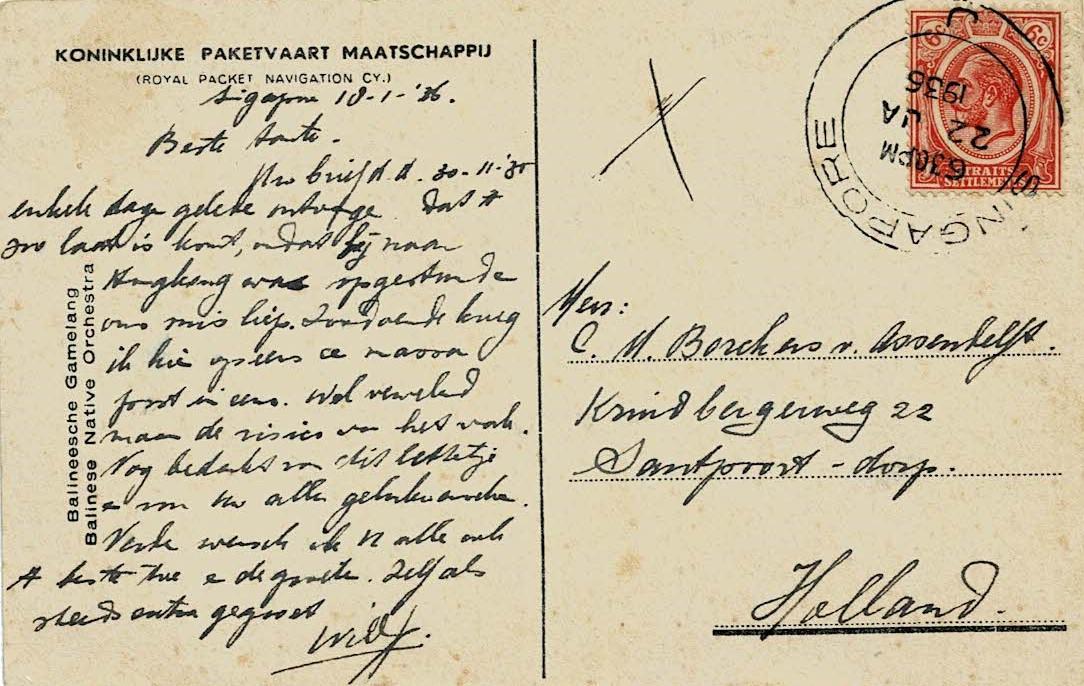 KONINKLIJKE PAKETVAART MAATSCHAPPIJ
(ROYAL PACKET NAVIGATION CY.)
Sigapore 18-1-'36.
Beste tante.
Uw brief d.d. 30-11-'35
enkele dage gelede ontvange. Dat
zoo laat is komt, omdat hij naar
Hongkong was opgestuurd
ons mis liep. Zoodoende kreeg
ik hier opeens de massa
post in eens. Wel vervelend
maar de risico van het vak.
Nog bedankt voor dit lettertje
e voor Uw alle gelukwensche.
Verde wensch ik U alle ook
beste toe e de groete. Zelf als
steeds extra gegroet
Will
Balineesche Gamelang
Balinese Native Orchestra
X
6c 6c
STRAITS
SETTLEMENTS
SINGAPORE
6 30PM
22 JA
1936
Mevr:
C. M. Borchers v. Assendelft.
Kruidbergerweg 22
Santpoort - dorp.
Holland.